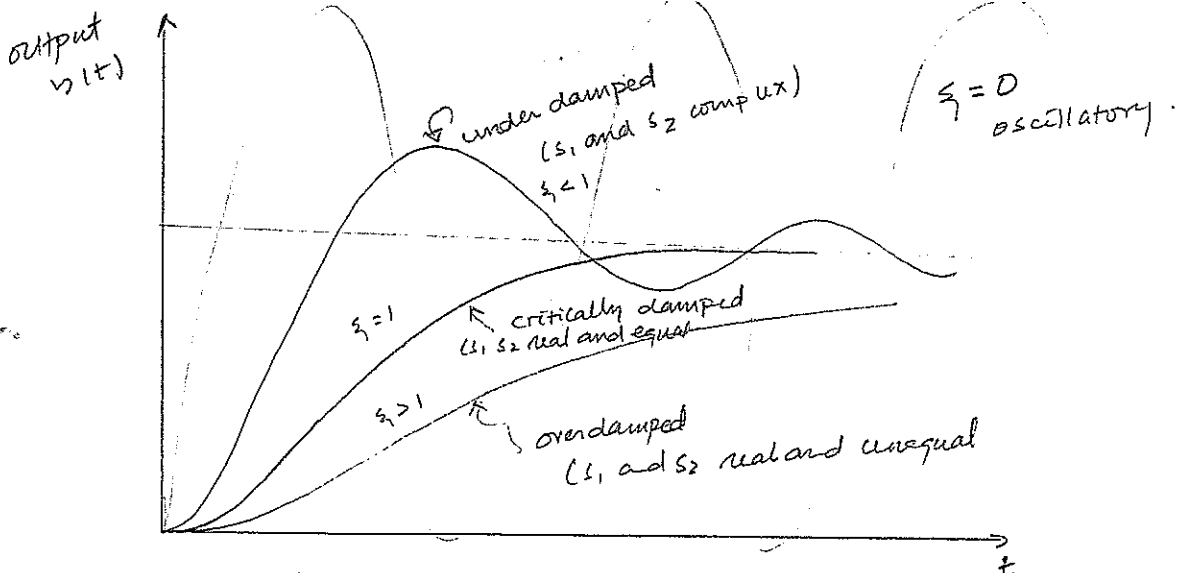 output
y(t)
under damped
(s₁ and s₂ complex)
ξ < 1
ξ = 0
oscillatory.
ξ = 1
critically damped
(s₁ s₂ real and equal
ξ > 1
overdamped
(s₁ and s₂ real and unequal
t